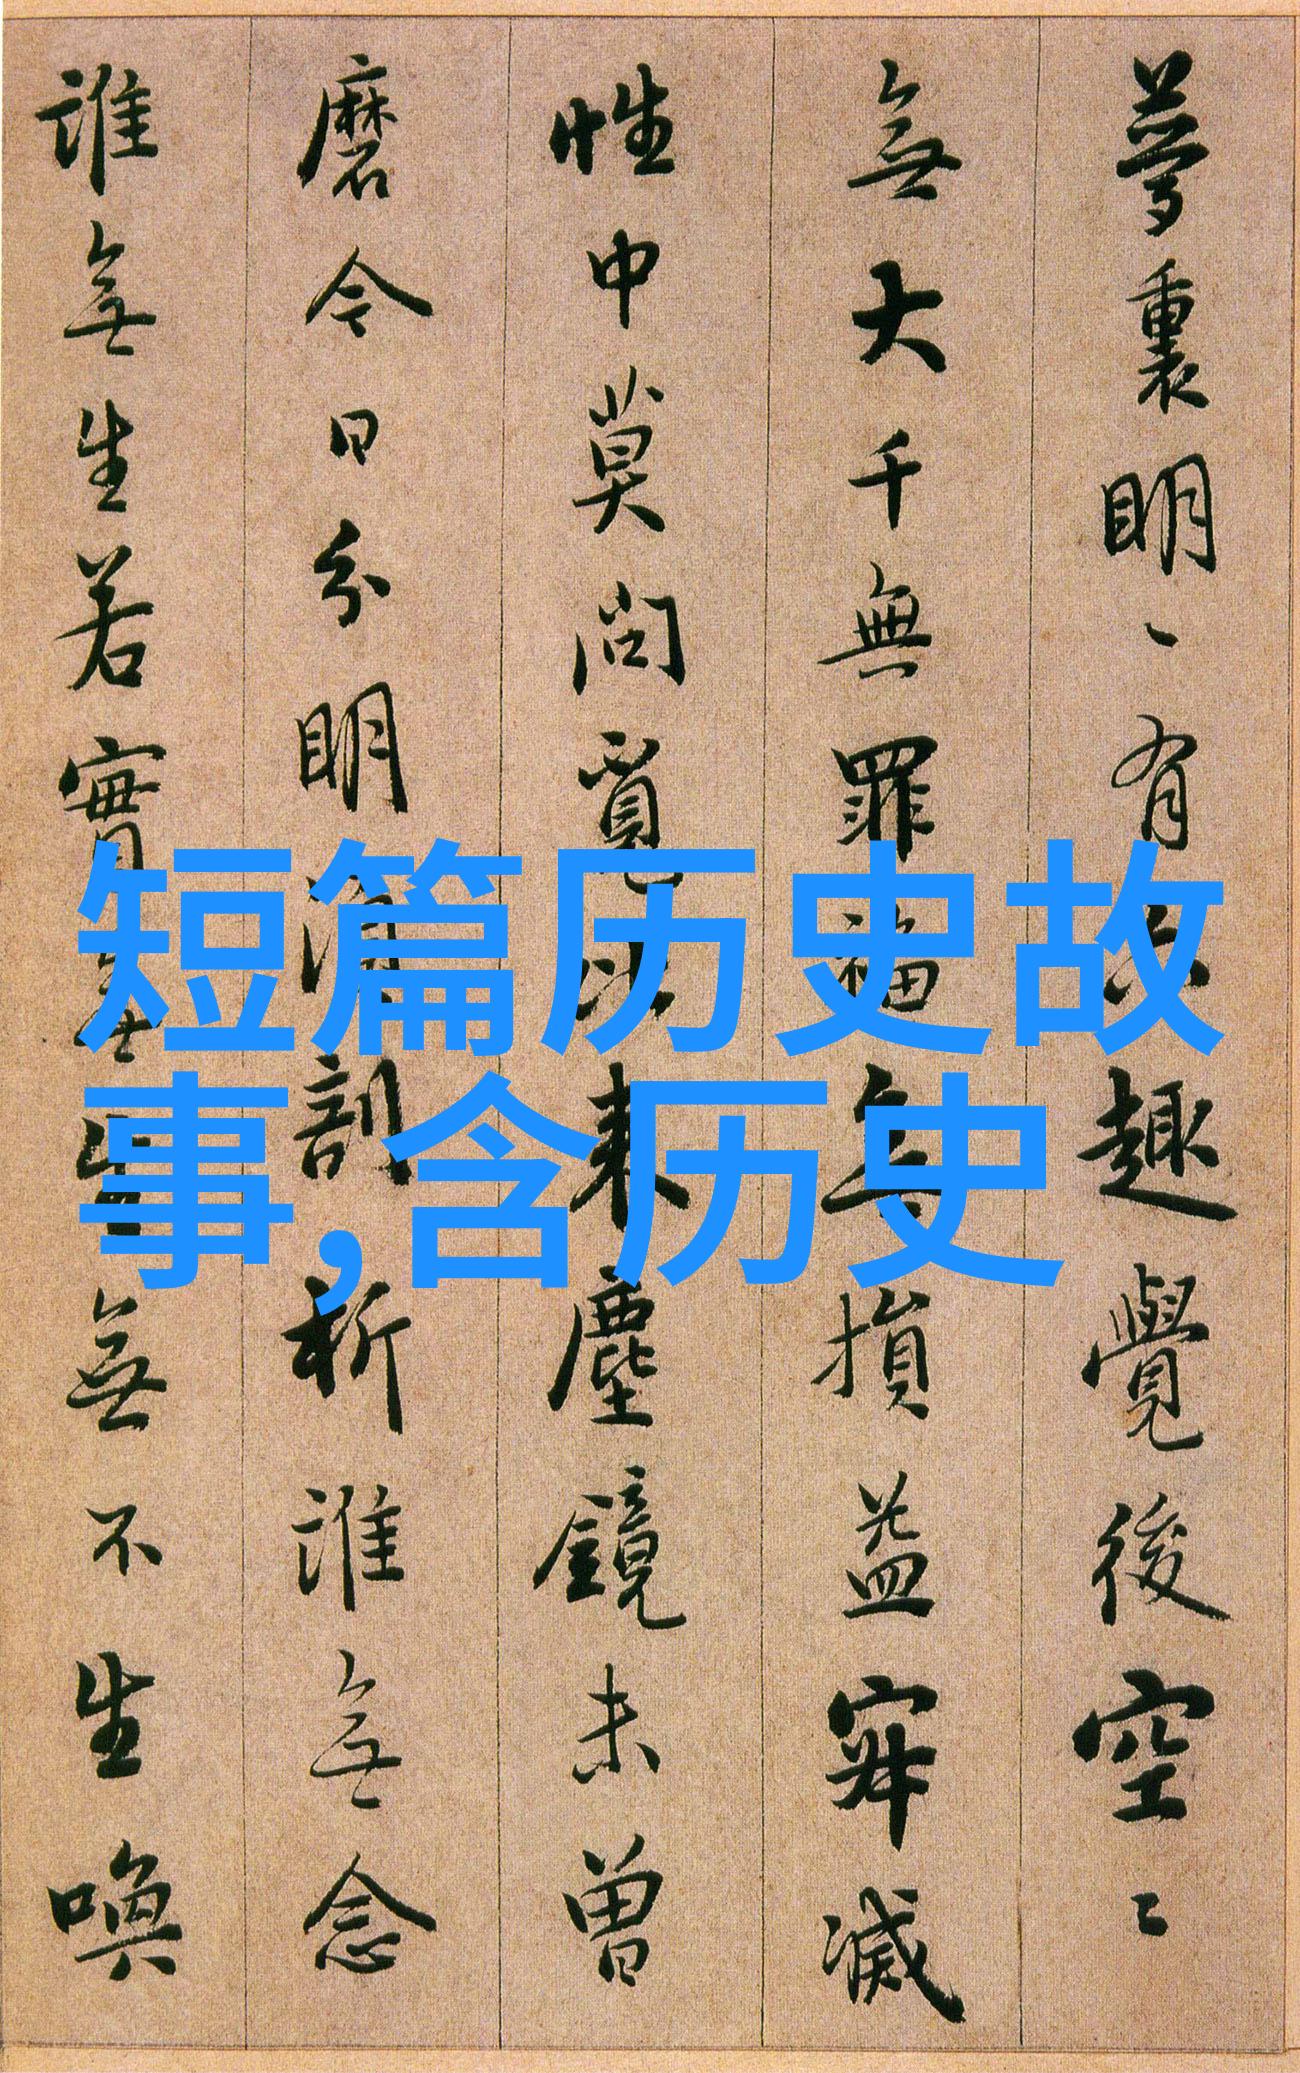 夢裏明丶有六趣覺後空〻
無大千無罪福無損益寂滅
性中莫問覓比來塵鏡未曾
磨今日分明須剖析誰無念
誰無生若實無生無不生喚
短篇历史故
事,含历史